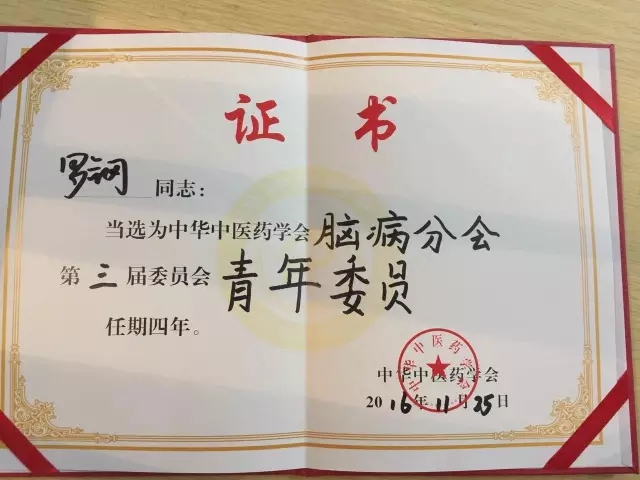 证 书
罗钢 同志：
当选为中华中医药学会脑病分会
第三届委员会青年委员
任期四年。
中华中医药学会
2016年11月25日
中华中医药学会